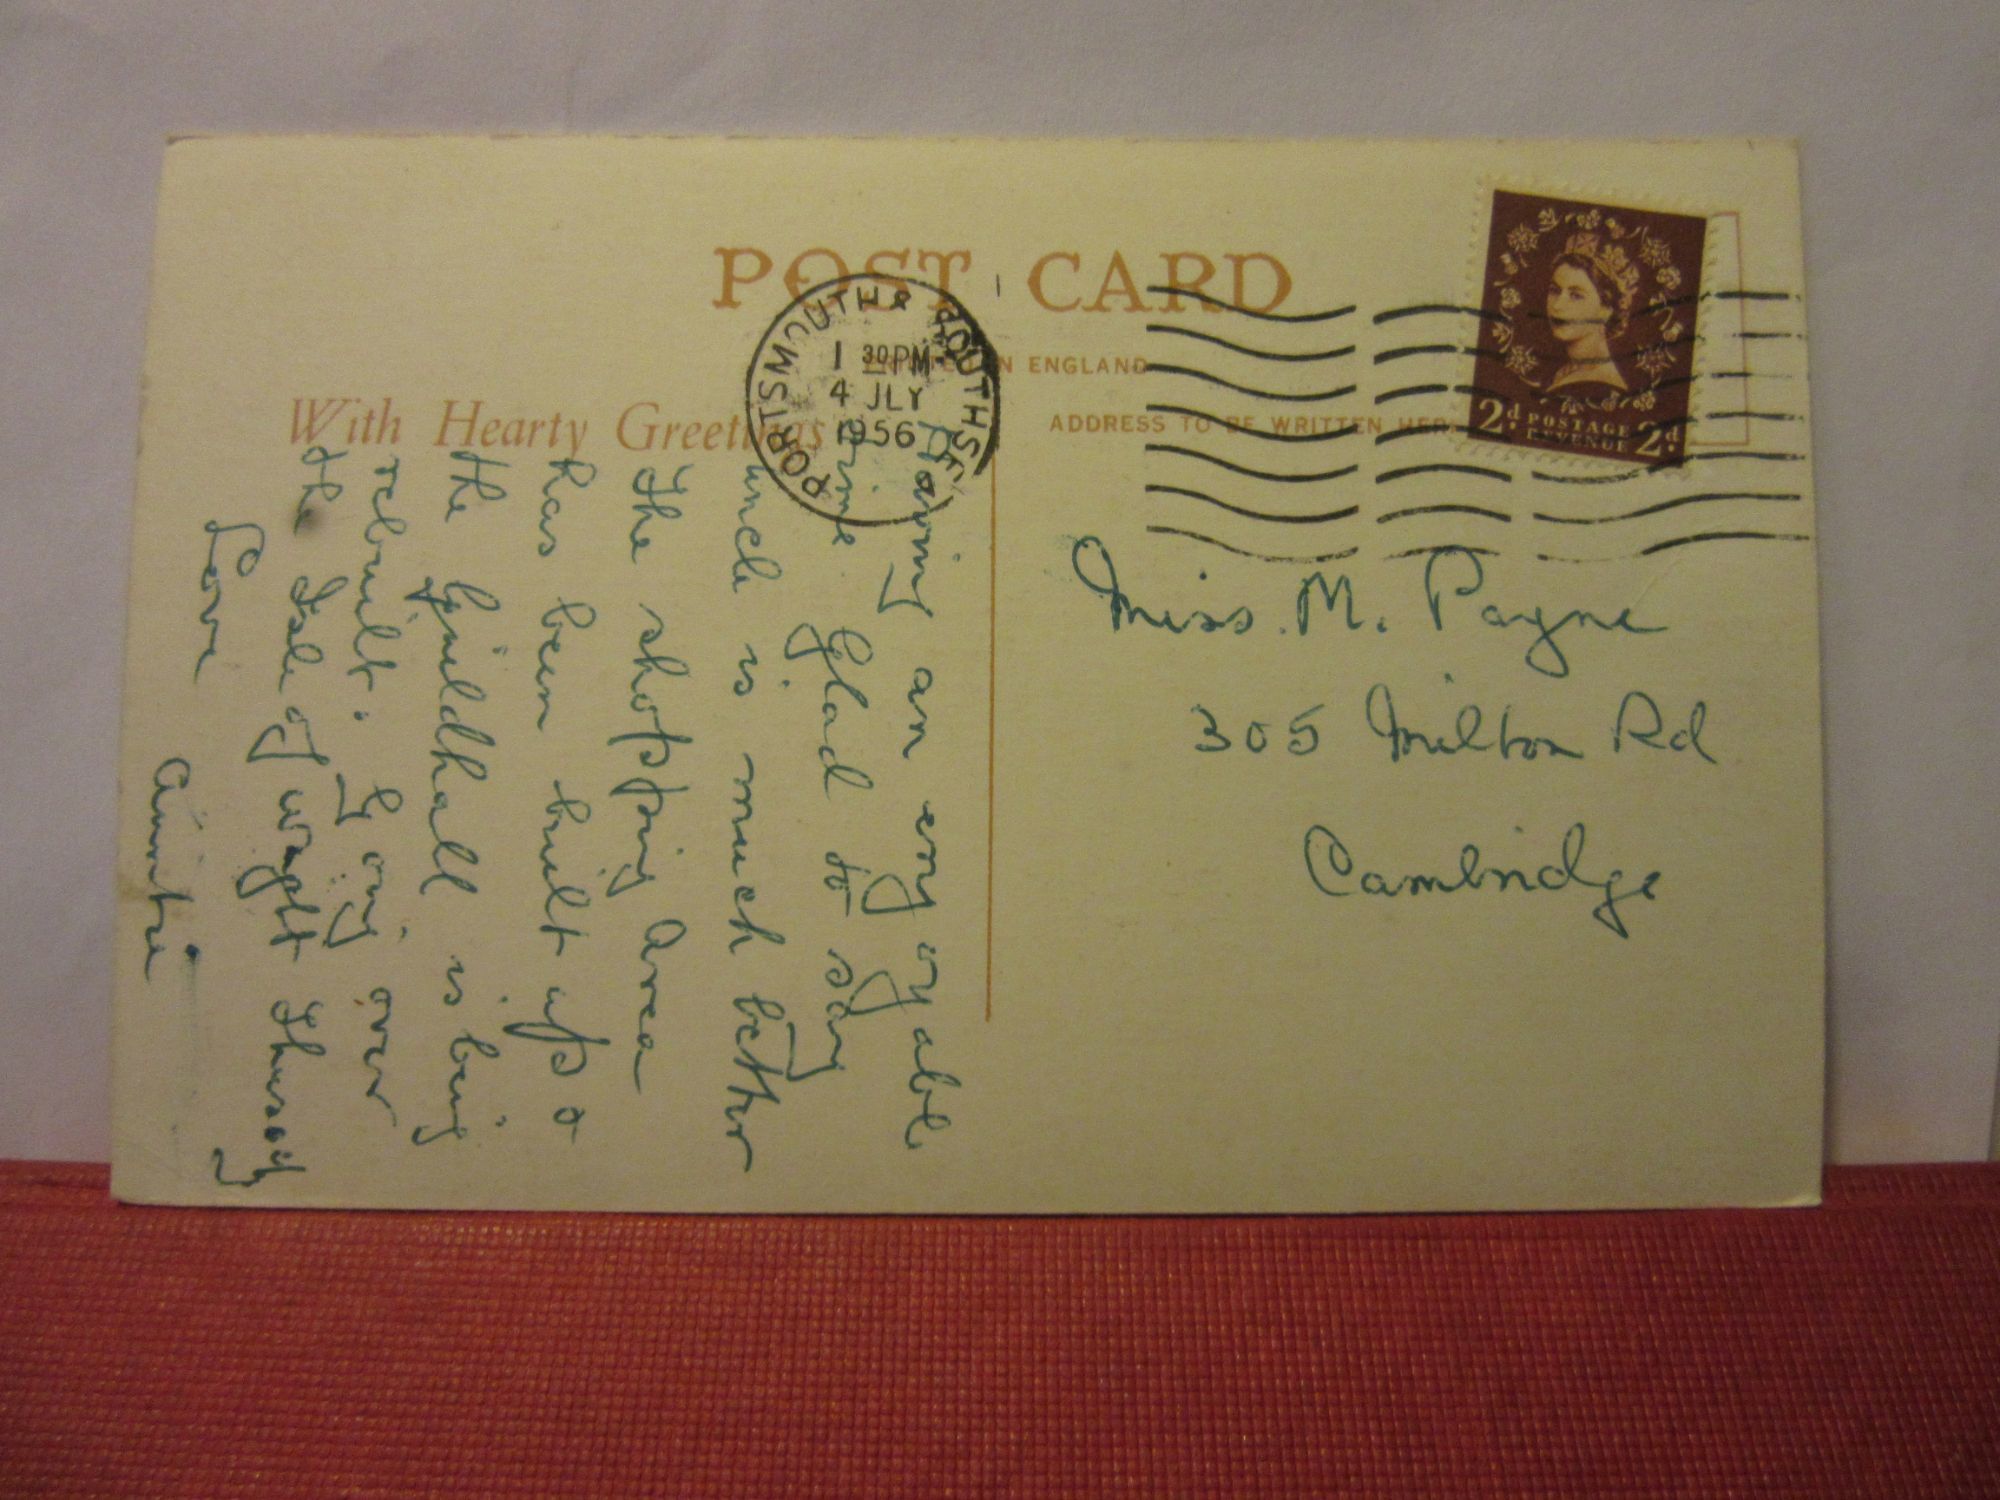 POST CARD
PRINTED IN ENGLAND
With Hearty Greetings
ADDRESS TO BE WRITTEN HERE
PORTSMOUTH & SOUTHSEA
1 30 PM
4 JLY
1956
2d POSTAGE REVENUE 2d
Having an enjoyable
time. Glad to say
uncle is much better
The shopping area
has been built up &
the Guildhall is being
rebuilt. Going over
the Isle of Wight Thursday
Love
Auntie
Miss. M. Payne
305 Milton Rd
Cambridge